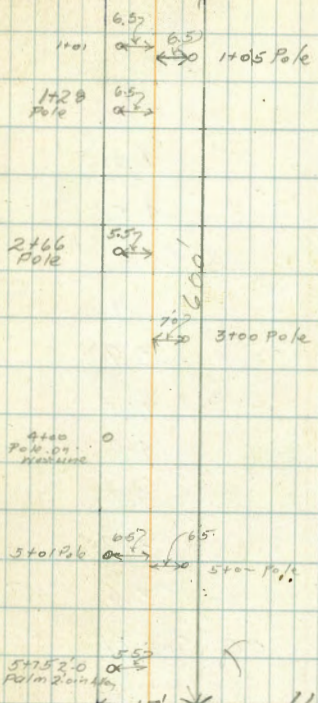 6.5
1+01
6.5
1+05 Pole
1+28
Pole
6.5
2+66
Pole
5.5
600'
7.0
3+00 Pole
4+00
Pole on
5+01 Pole
6.5
6.5
Pole
5+75 2.0
Palm
5.5